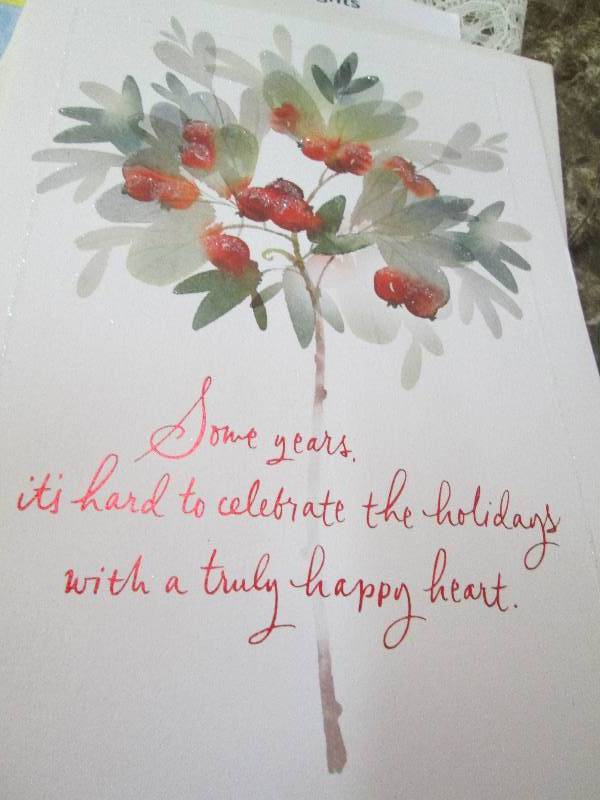 Some years,
it's hard to celebrate the holidays
with a truly happy heart.